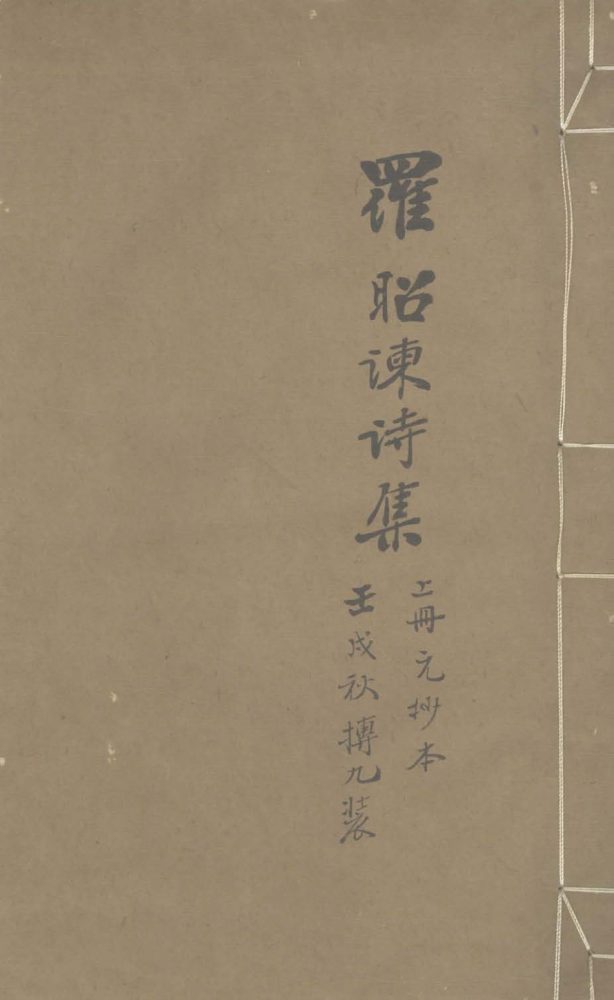 羅昭谏诗集
上冊元抄本
壬戌秋摶九装